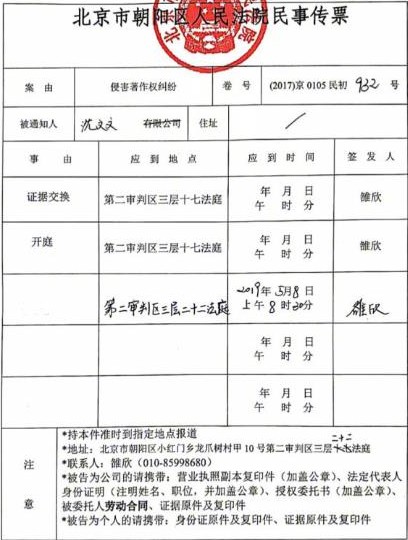 北京市朝阳区人民法院民事传票
案 由 侵害著作权纠纷 卷 号 (2017)京 0105 民初 932 号
被通知人 沈文文 有限公司 住址 /
事 由 应 到 地 点 应 到 时 间 签 发 人
证据交换 第二审判区三层十七法庭 年 月 日 午 时 分 雒欣
开庭 第二审判区三层十七法庭 年 月 日 午 时 分 雒欣
第二审判区三层二十二法庭 2019年5月8日 上午8时30分 雒欣
年 月 日 午 时 分
年 月 日 午 时 分
注 意
*持本件准时到指定地点报道
*地址：北京市朝阳区小红门乡龙爪树村甲 10 号第二审判区三层十七法庭
二十二
*联系人：雒欣 (010-85998680)
*被告为公司的请携带：营业执照副本复印件（加盖公章）、法定代表人
身份证明（注明姓名、职位，并加盖公章）、授权委托书（加盖公章）、
被委托人劳动合同、证据原件及复印件
*被告为个人的请携带：身份证原件及复印件、证据原件及复印件